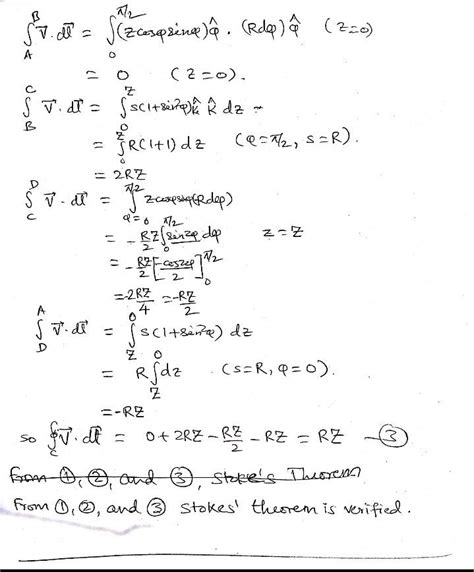 ∫_A^B V⃗·dl⃗ = ∫_0^{π/2} (z cosφ sinφ) φ̂ · (R dφ) φ̂ (z=0)
= 0 (z=0).
∫_B^C V⃗·dl⃗ = ∫_0^Z s(1+sin²φ) k̂ · k̂ dz
= ∫_0^Z R(1+1) dz (φ=π/2, s=R).
= 2RZ
∫_C^D V⃗·dl⃗ = ∫_{φ=0}^{π/2} z cosφ sinφ (R dφ)
= -RZ/2 ∫_0^{π/2} sin2φ dφ z=Z
= -RZ/2 [-cos2φ/2]_0^{π/2}
= -2RZ/4 = -RZ/2
∫_D^A V⃗·dl⃗ = ∫_Z^0 s(1+sin²φ) dz
= R ∫_Z^0 dz (s=R, φ=0).
= -RZ
so ∮_C V⃗·dl⃗ = 0+2RZ-RZ/2-RZ = RZ — ③
From ①, ②, and ③, stoke's Theorem
From ①, ②, and ③ stokes' theorem is verified.